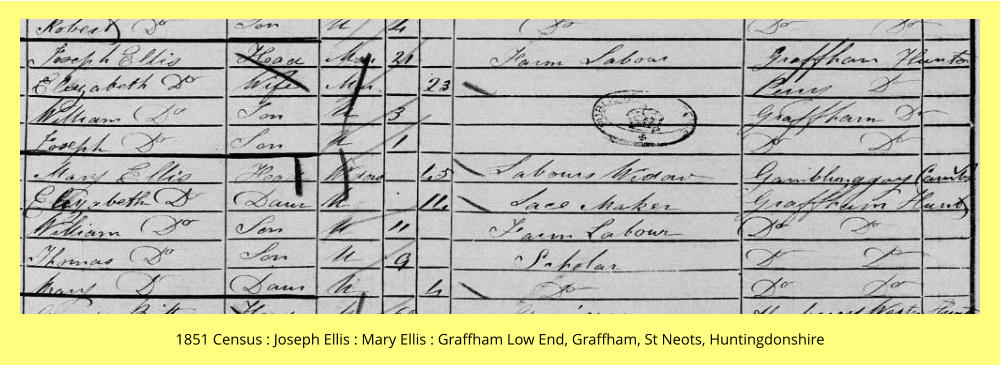 Robert Do Son U 4 Do Do Do
Joseph Ellis Head Mar 21 Farm Labour Graffham Hunts
Elizabeth Do Wife Mar 23 Do
William Do Son U 3 Graffham Do
Joseph Do Son U 1 Do Do
Mary Ellis Head Widow 45 Labours Widow Gamblinggay Cambs
Elizabeth D Daur U 14 Lace Maker Graffham Hunts
William Do Son U 11 Farm Labour Do Do
Thomas Do Son U 9 Scholar D D
Mary D Daur U 4 Do Do Do
1851 Census : Joseph Ellis : Mary Ellis : Graffham Low End, Graffham, St Neots, Huntingdonshire